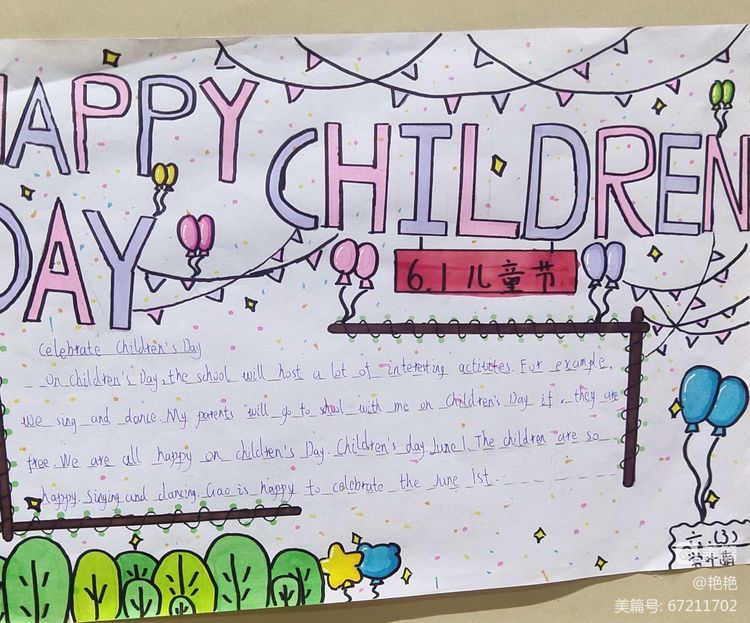 HAPPY CHILDREN
DAY
6.1儿童节
Celebrate Children's Day
On Children's Day, the school will host a lot of interesting activities. For example,
We sing and dance My parents will go to school with me on Children's Day if, they are
free. We are all happy on children's Day. Children's day. June 1. The children are so
happy. Singing and dancing. Gao is happy to celebrate the June 1st.
六.(3)
@艳艳
美篇号: 67211702